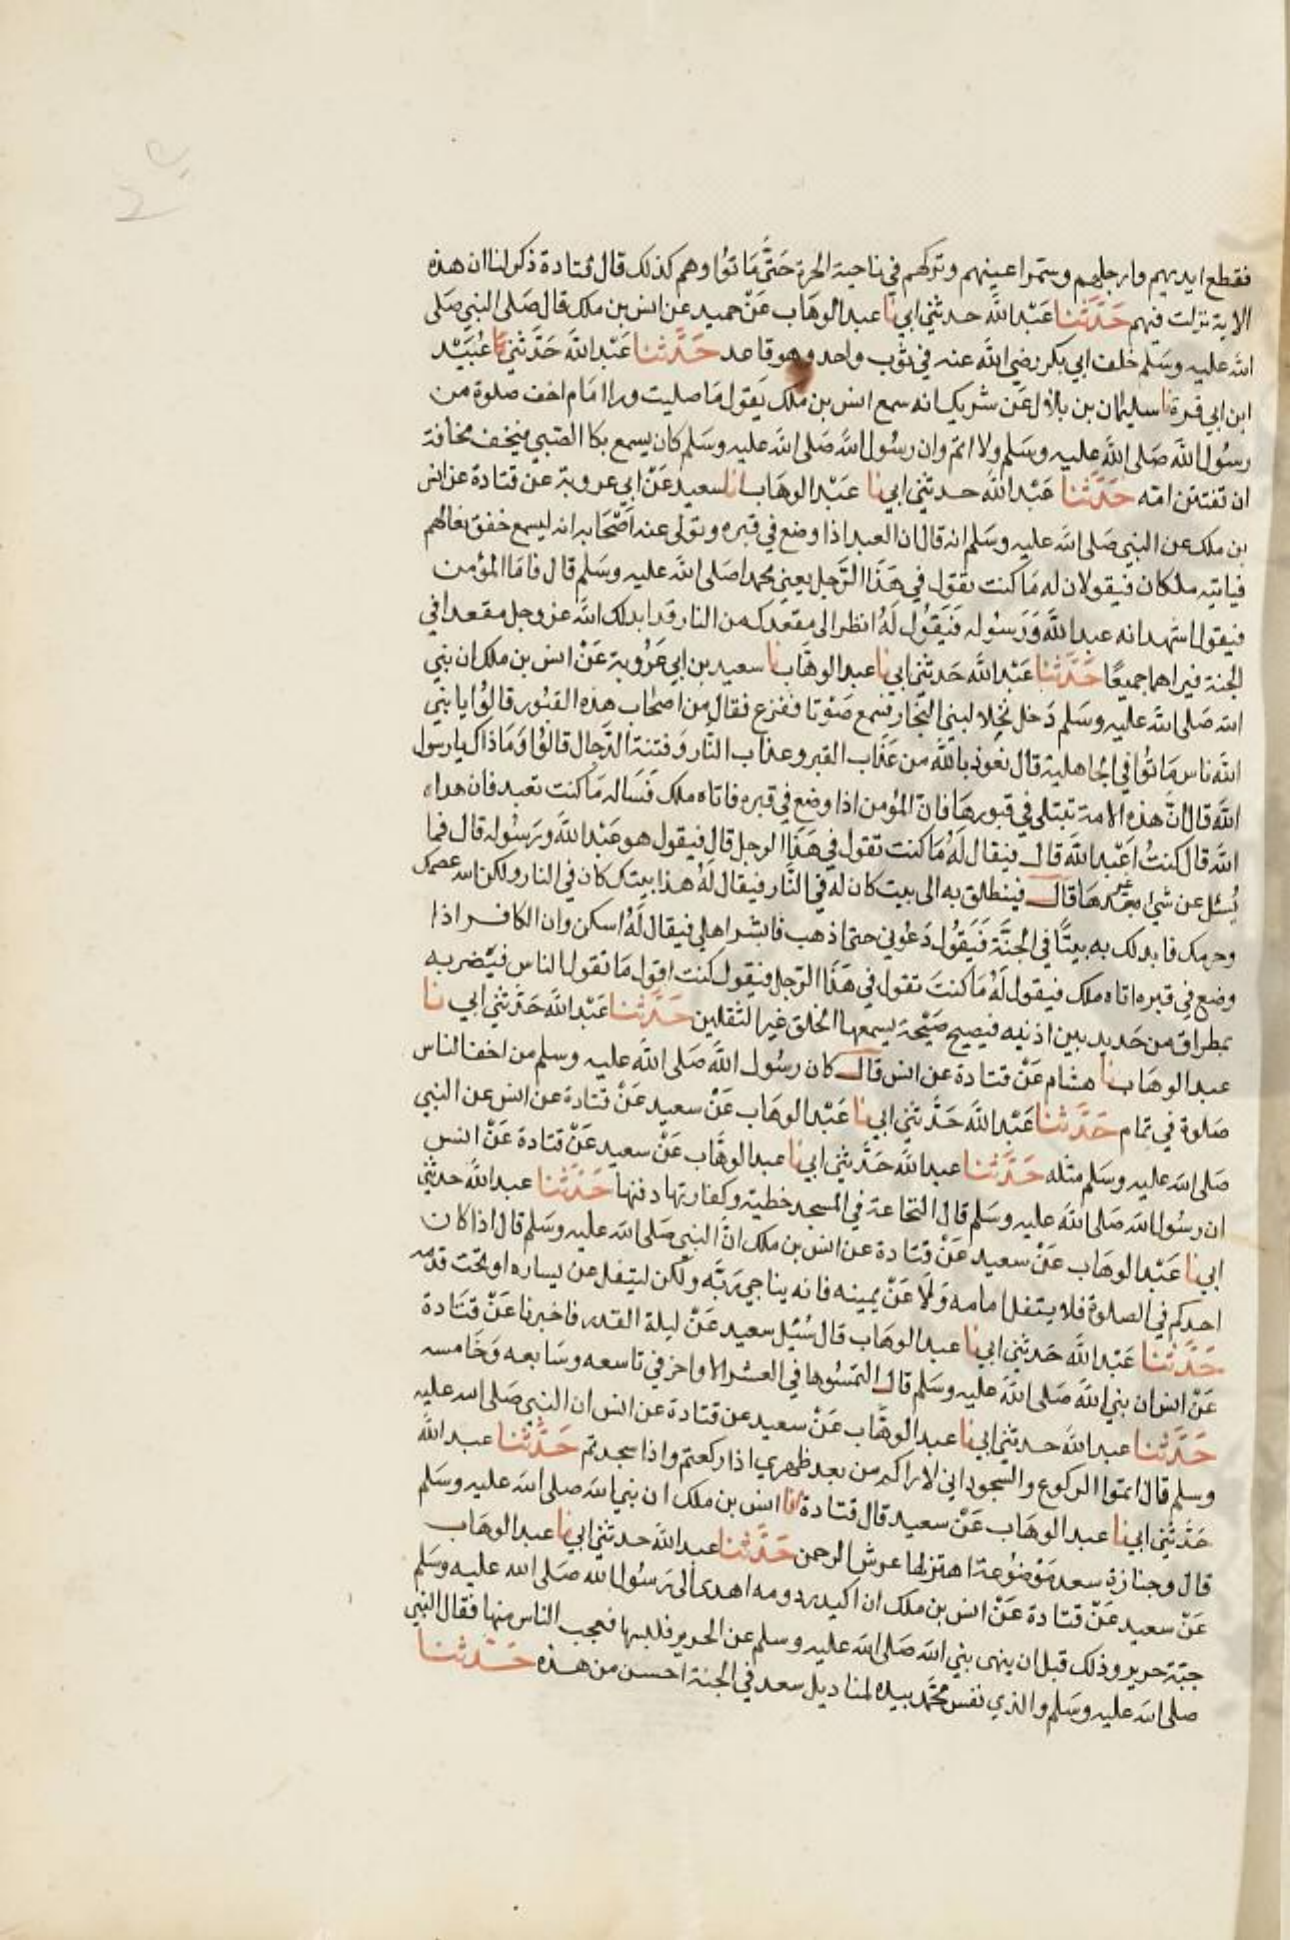 فقطع ايديهم وارجلهم وسمر اعينهم وتركهم في ناحية الحرة حَتَّى مَاتوُا وهم كذلك قال قتادة ذكر لنا ان هذه
الاية نزلت فيهم حَدَّثَنا عَبْد الله حدثني ابي نا عبد الوهَاب عَنْ حميد عن انس بن ملك قال صَلى النبي صَلى
الله عليه وسَلم خلف ابي بكر رضي الله عنه في ثوب واحد وهو قاعد حَدَّثنا عَبْد الله حَدَّثني عُبَيْد
ابن ابي قرة نا سليمان بن بلال عَن شريك انه سمع انس بن ملك يَقول مَا صليت ورا امَام اخف صلوة من
رسُول الله صَلى الله عليه وسَلم ولا اتم وان رسُول الله صَلى الله عليه وسَلم كان يسمع بكا الصَبي فيخفف مخافة
ان تفتتن امه حَدَّثنا عَبْد الله حدثني ابي نا عَبْد الوهَاب انا سعيد عَنْ ابي عروبة عن قتادة عن انس
بن ملك عن النبي صَلى الله عليه وسَلم انه قال ان العبد اذا وضع في قبره وتولى عنه اَصْحَابه انه ليسمع خفق نعالهم
فياتيه ملكان فيقولان له مَا كنت تقول في هَذَا الرَّجل يعني محمدا صَلى الله عليه وسَلم قال فامَا المؤمن
فيقول اشهد انه عبد الله وَرَسوله فَيَقُول لَهُ انظر الى مقعدك من النار قد ابدلك الله عز وجل مقعدا في
الجنة فيراهما جميعًا حَدَّثَنا عَبْد الله حَدثني ابي نا عبد الوهَّاب نا سعيد بن ابي عَرُوبة عَنْ انس بن ملك ان نبي
الله صَلى الله عليه وسَلم دَخل نخلا لبني النجار فسمع صَوْتا ففزع فقال من اصحَاب هذه القبُور قالوُا يا نبي
الله ناس مَاتوُا في الجاهلية قال نعوذ بالله من عَذَاب القبر وعذاب النَّار وَفتنة الدَّجال قالوُا وَمَا ذاك يا رسَول
الله قال انَّ هذه الامة تبتلى في قبورهَا فانّ المؤمن اذا وضع في قبره فاتاه ملك فَسَاله مَا كنت تعبد فان هداه
الله قال كنتُ اَعْبد الله قال فيقال لَهُ مَا كنت تقول في هَذا الرجل قال فيقول هو عَبْد الله وَرَسُوله قال فما
يُسئل عن شيْ غيرهَا قال فينطلق به الى بيت كان له في النَّار فيقال لَهُ هذا بيتك كان في النار ولكن الله عصمك
ورحمك فابدلك به بيتًا في الجنَّة فَيَقُول دَعُوني حتى اذهب فابشر اهلي فيقال لَهُ اسكن وان الكافر اذا
وضع في قبره اتاه ملك فيقول لَهُ مَا كنتَ تقول في هَذَا الرّجل فيقول كنت اقول مَا تقول الناس فيضربه
بمطراق من حَديد بين اذنيه فيصيح صَيْحة يسمعها الخلق غير الثقلين حَدَّثنا عَبْد الله حَدَّثني ابي نا
عبد الوهَاب نا هشام عَنْ قتادة عن انس قال كان رسُول الله صَلى الله عليه وسلم من اخف الناس
صَلوة في تمام حَدَّثنا عَبْد الله حَدَّثني ابي نا عَبْد الوهَاب عَنْ سعيد عَنْ قتادة عن انس عن النبي
صَلى الله عليه وسَلم مثله حَدَّثنا عبد الله حَدَّثني ابي نا عبد الوهَّاب عَنْ سعيد عَنْ قتادة عَنْ انس
ان رسُول الله صَلى الله عليه وسَلم قال النخاعة في المسجد خطية وكفارتها دفنها حَدَّثنا عبد الله حدثني
ابي نا عَبْد الوهَاب عَنْ سعيد عَنْ قتادة عن انس بن ملك انَّ النبي صَلى الله عليه وسَلم قال اذا كان
احدكم في الصلوة فلا يتفل امامه وَلَا عَنْ يمينه فانه يناجي رَبَّه ولكن ليتفل عن يساره او تحت قدمه
حَدَّثنا عَبْد الله حَدثني ابي نا عبد الوهَاب قال سُئِل سعيد عَنْ ليلة القدر فاخبرنا عَنْ قتَادة
عَنْ انس ان نبي الله صَلى الله عليه وسَلم قال التمسُوها في العشر الاواخر في تاسعه وسَابعه وَخَامسه
حَدَّثنا عبد الله حدثني ابي نا عبد الوهَّاب عَنْ سعيد عن قتادة عن انس ان النبي صَلى الله عليه
وسلم قال اتموا الركوع والسجود اني لاراكم من بعد ظهري اذا ركعتم واذا سجدتم حَدَّثنا عبد الله
حَدَّثني ابي نا عبد الوهَاب عَنْ سعيد قال قتادة نا انس بن ملك ان نبي الله صلى الله عليه وسَلم
قال وجنازة سعد مَوْضوُعة اهتز لها عرش الرحمن حَدَّثنا عبد الله حدثني ابي نا عبد الوهَاب
عَنْ سعيد عَنْ قتادة عَنْ انس بن ملك ان اكيدر دومه اهدى الى رَسُول الله صَلى الله عليه وسَلم
جبّة حرير وذلك قبل ان ينهى نبي الله صَلى الله عليه وسلم عن الحرير فلبسها فعجب الناس منها فقال النبي
صلى الله عليه وسَلم والذي نفس محمَّد بيده لمناديل سعد في الجنة احسن من هذه حَدَّثنا